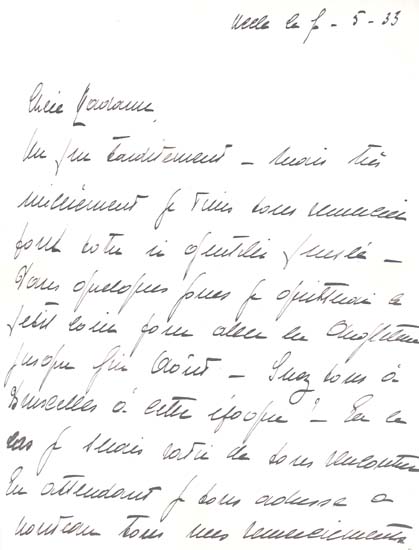 Uccle le 7 - 5 - 33
Chère Madame,
Un peu tardivement - mais très
sincèrement je viens vous remercier
pour votre si gentille pensée -
Dans quelques jours je quitterai ce
petit coin pour aller en Angleterre
jusque fin Août - Serez vous à
Bruxelles à cette époque ? - En ce
cas je serais ravie de vous rencontrer
En attendant je vous adresse à
nouveau tous mes remerciements